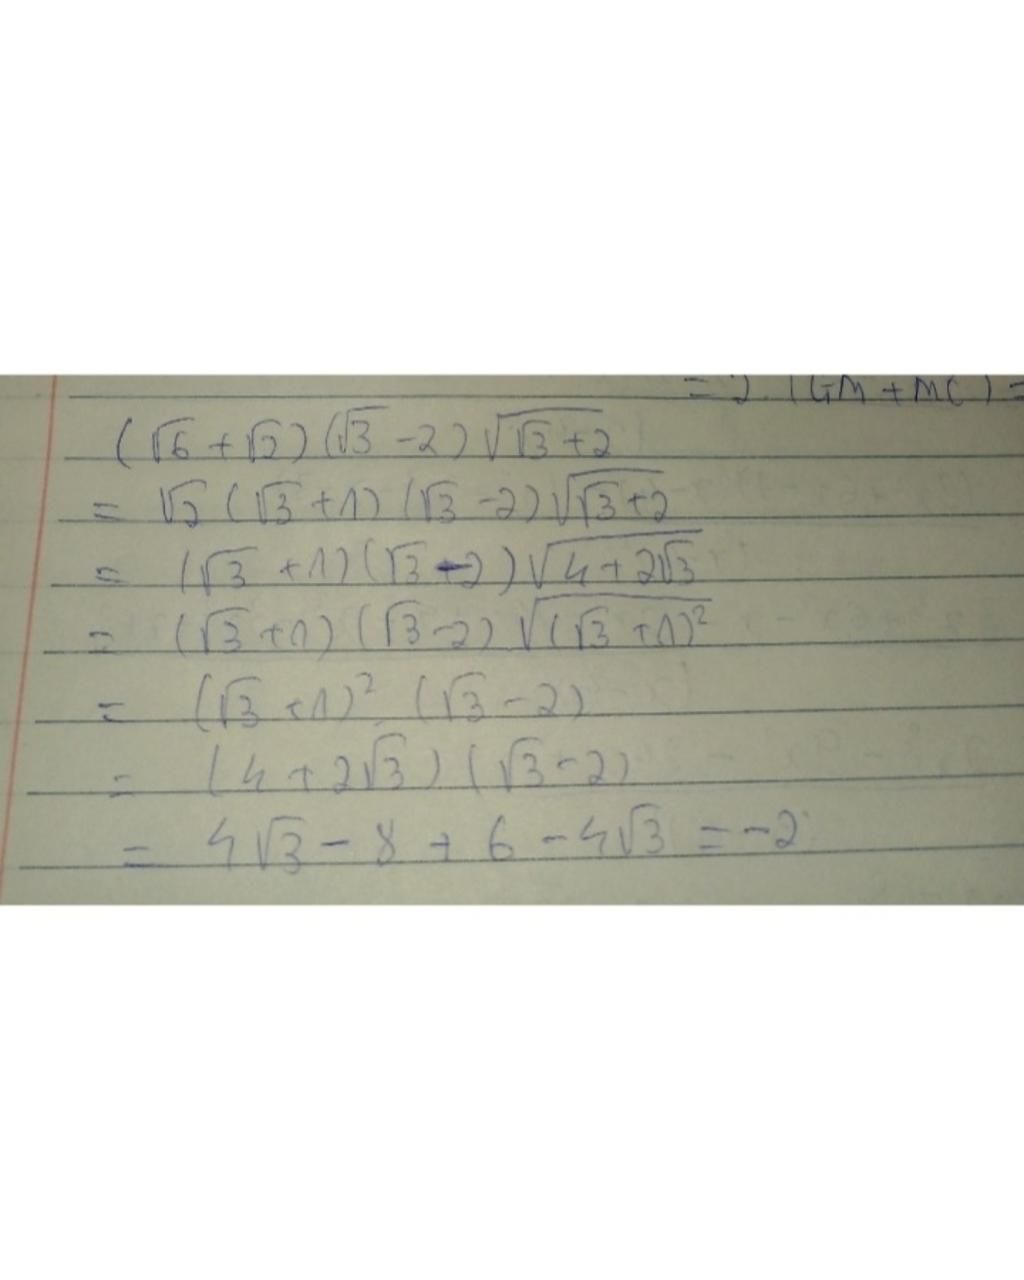 = 2. (GM + MC) =
(√6 + √2) (√3 - 2) √(√3 + 2)
= √2 (√3 + 1) (√3 - 2) √(√3 + 2)
= (√3 + 1) (√3 - 2) √(4 + 2√3)
= (√3 + 1) (√3 - 2) √((√3 + 1)²)
= (√3 + 1)² (√3 - 2)
= (4 + 2√3) (√3 - 2)
= 4√3 - 8 + 6 - 4√3 = -2